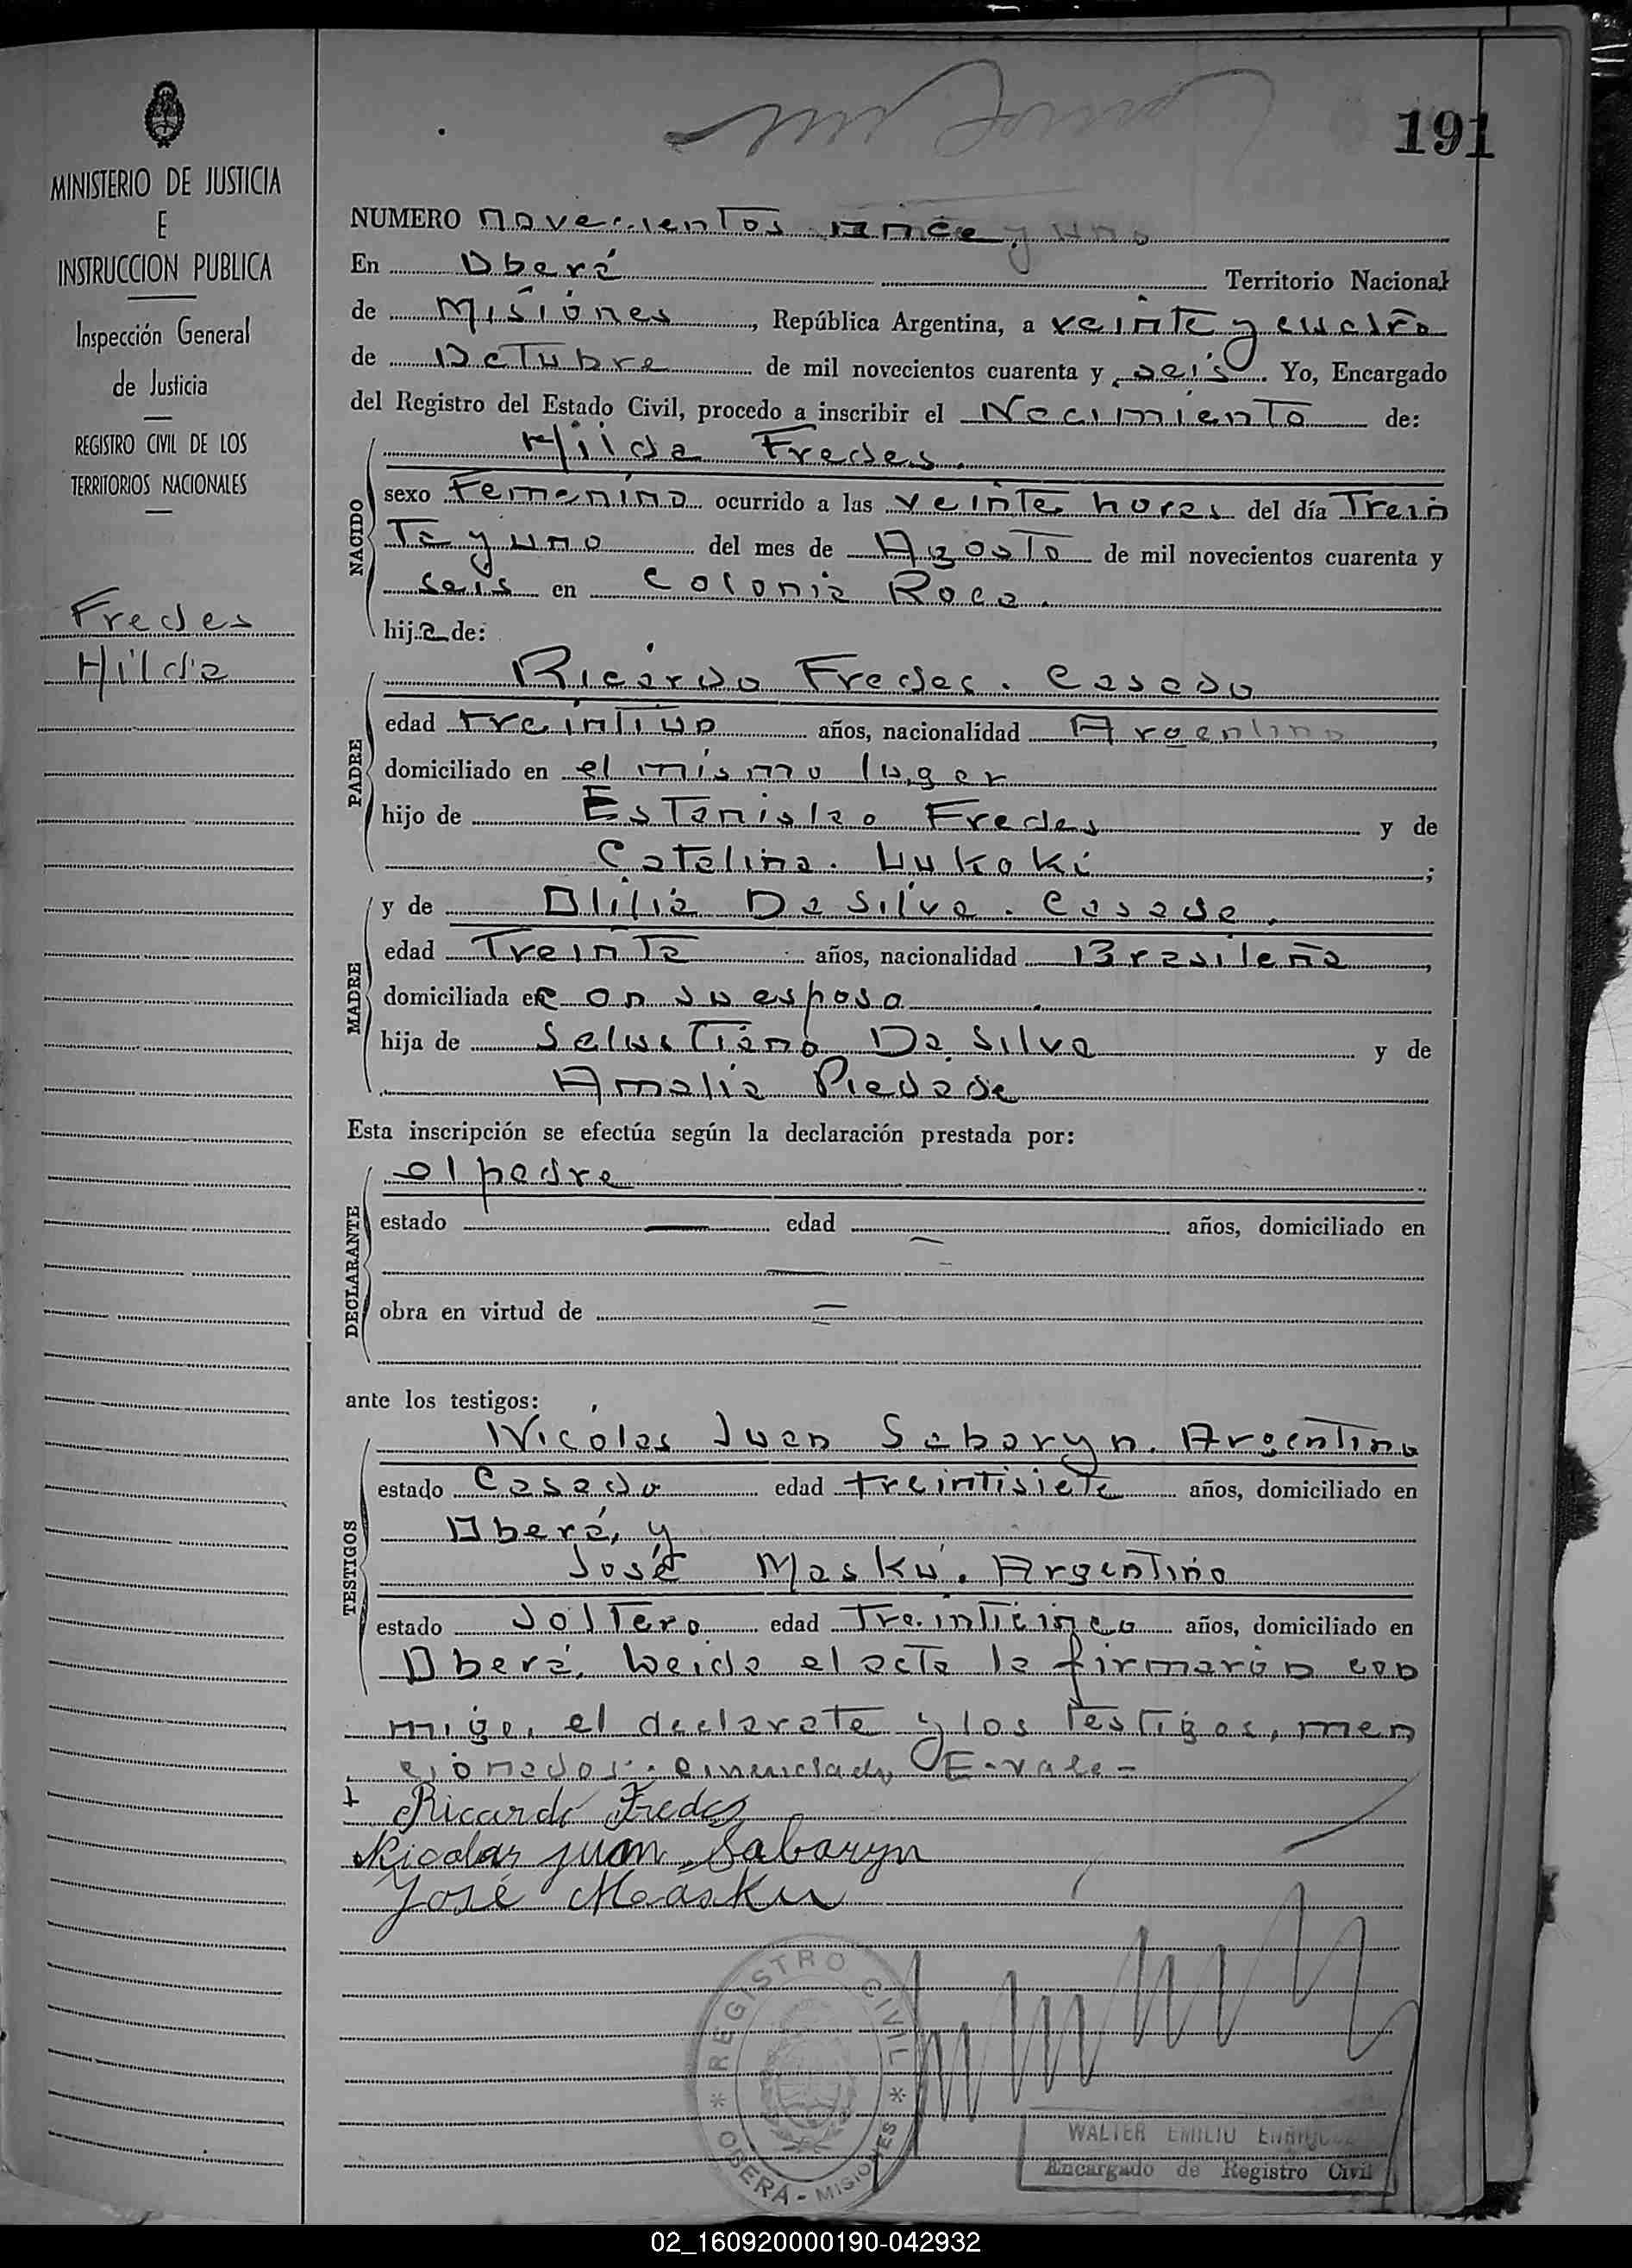 191
MINISTERIO DE JUSTICIA
E
INSTRUCCION PUBLICA
Inspección General
de Justicia
REGISTRO CIVIL DE LOS
TERRITORIOS NACIONALES
Fredes
Hilda
NUMERO novecientos y uno
En Oberá Territorio Nacional
de Misiones, República Argentina, a veinte y cuatro
de Octubre de mil novecientos cuarenta y seis. Yo, Encargado
del Registro del Estado Civil, procedo a inscribir el Nacimiento de:
NACIDO
Hilda Fredes.
sexo Femenino ocurrido a las veinte horas del día Trein
Ta y uno del mes de Agosto de mil novecientos cuarenta y
seis en Colonia Roca.
hija de:
PADRE
Ricardo Fredes. Casado
edad treintiuo años, nacionalidad Argentino,
domiciliado en el mismo lugar
hijo de Estanislao Fredes y de
Catalina. ;
MADRE
y de Da Silva. Casada.
edad Treinta años, nacionalidad Brasileña,
domiciliada en con su esposo.
hija de Salustiano Da Silva y de
Amalia Piedade
Esta inscripción se efectúa según la declaración prestada por:
DECLARANTE
el padre
estado — edad — años, domiciliado en
—
obra en virtud de =
ante los testigos:
TESTIGOS
Nicólas Juan Sabaryn. Argentino
estado Casado edad treintisiete años, domiciliado en
Oberá, y
José Maskú. Argentino
estado Soltero edad Treinticinco años, domiciliado en
Oberá. Leida el acta la firmarón con
migo, el declarate y los Testigos, men
cionados. E-vale-
Ricardo Fredes
Nicolas juan Sabaryn
José Maskú
REGISTRO CIVIL
OBERÁ - MISIONES
WALTER EMILIO
Encargado de Registro Civil
02_160920000190-042932